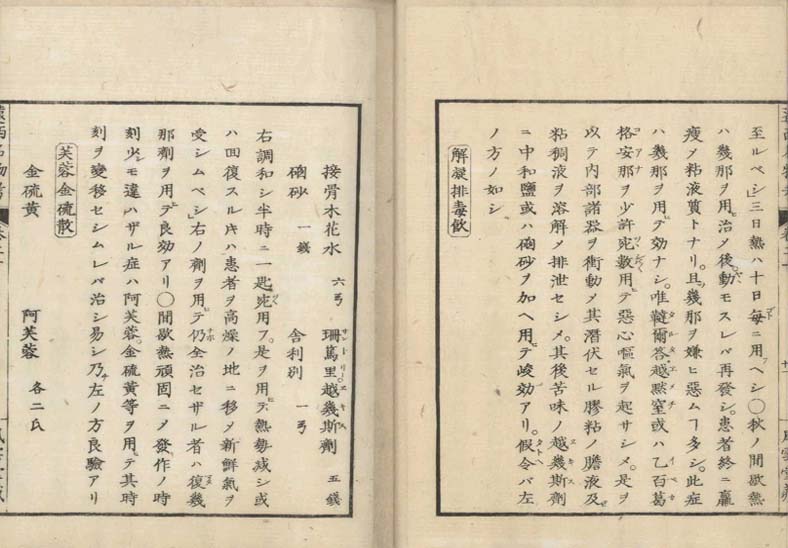 至ルベシ」三日熱ハ十日毎ニ用フヘシ〇秋ノ間歇熱
ハ幾那ヲ用ヒ治メ後動モスレバ再發シ。患者終ニ羸
瘦メ粘液質トナリ。且ツ幾那ヲ嫌ヒ惡ムヿ多シ。此症
ハ幾那ヲ用ヒテ効ナシ。唯韃爾答越黙室或ハ乙百葛
格安那ヲ少許兊數用ヒテ惡心嘔氣ヲ起サシメ。是ヲ
以テ内部諸器ヲ衝動メ其潜伏セル膠粘ノ膽液及ヒ
粘稠液ヲ溶解メ排泄セシメ。其後苦味ノ越幾斯劑
ニ中和鹽或ハ硇砂ヲ加ヘ用ヒテ峻効アリ。假令バ左
ノ方ノ如シ
解凝排毒飲
接骨木花水 六弓 珊篤里越幾斯劑 五錢
硇砂 一錢 舎利別 一弓
右調和シ半時ニ一匙兊用フ。是ヲ用ヒテ熱勢減シ或
ハ回復スルキハ患者ヲ高燥ノ地ニ移メ新鮮氣ヲ
受シムベシ」右ノ劑ヲ用ヒテ仍全治セザル者ハ復幾
那劑ヲ用ヒテ良効アリ〇間歇熱頑固ニメ發作ノ時
刻少シモ違ハザル症ハ阿芙蓉。金硫黄等ヲ用ヒテ其時
刻ヲ變移セシムレバ治シ易シ乃チ左ノ方良驗アリ
芙蓉金硫散
金硫黄 阿芙蓉 各二氏